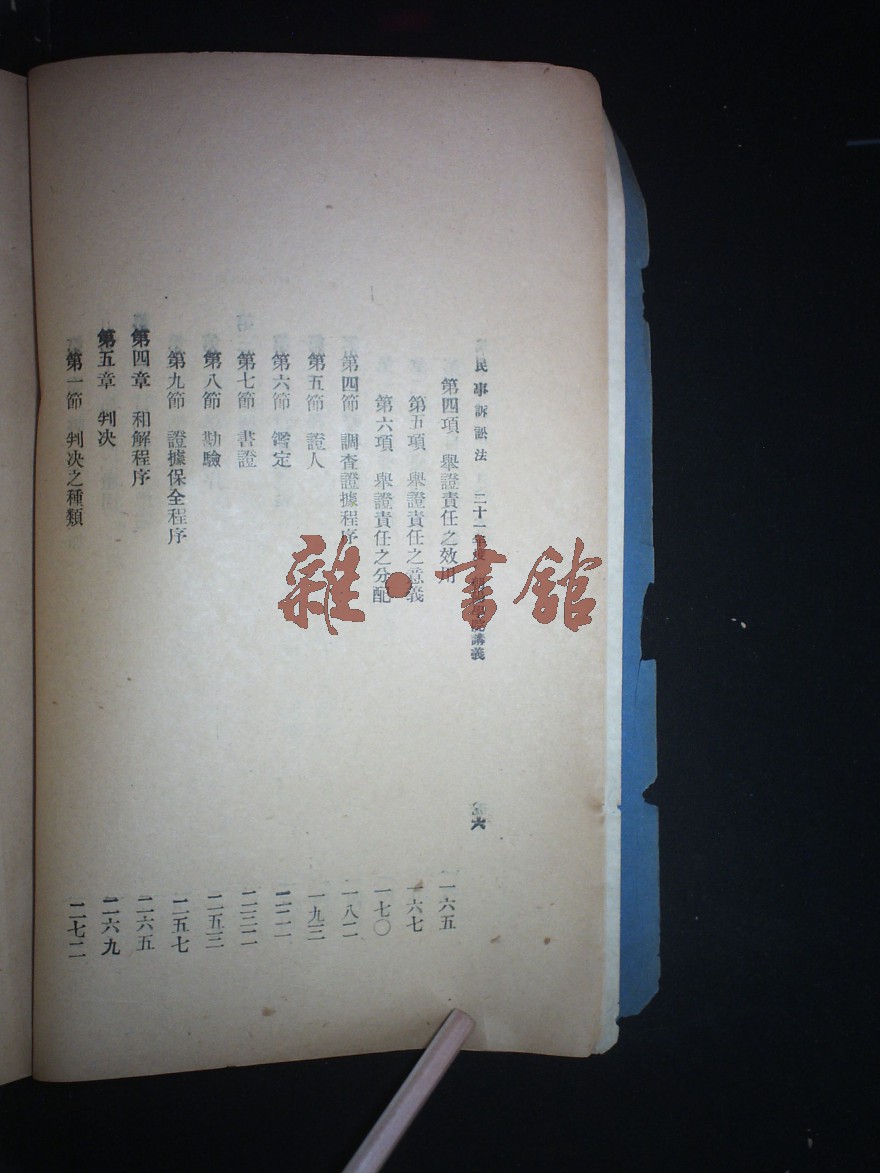 民事訴訟法 二十一年度 講義 六
第四項 舉證責任之效用 一六五
第五項 舉證責任之意義 一六七
第六項 舉證責任之分配 一七〇
第四節 調查證據程序 一八二
第五節 證人 一九三
第六節 鑑定 二二一
第七節 書證 二三二
第八節 勘驗 二五三
第九節 證據保全程序 二五七
第四章 和解程序 二六五
第五章 判決 二六九
第一節 判決之種類 二七二
雜·書館